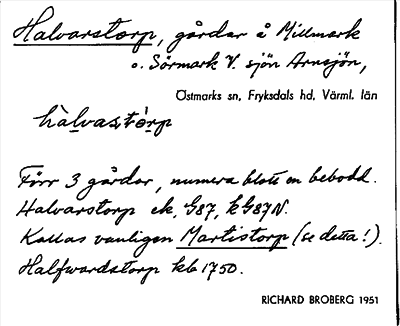 Halvarstorp, gårdar å Millmark
o. Sörmark V. sjön Arnsjön,
Östmarks sn, Fryksdals hd, Värml. län
hàlvastòrp
Förr 3 gårdar, numera blott en bebodd.
Halvarstorp ek, G87, kG87N.
Kallas vanligen Martistorp (se detta!).
Halfwardstorp kb 1750.
RICHARD BROBERG 1951